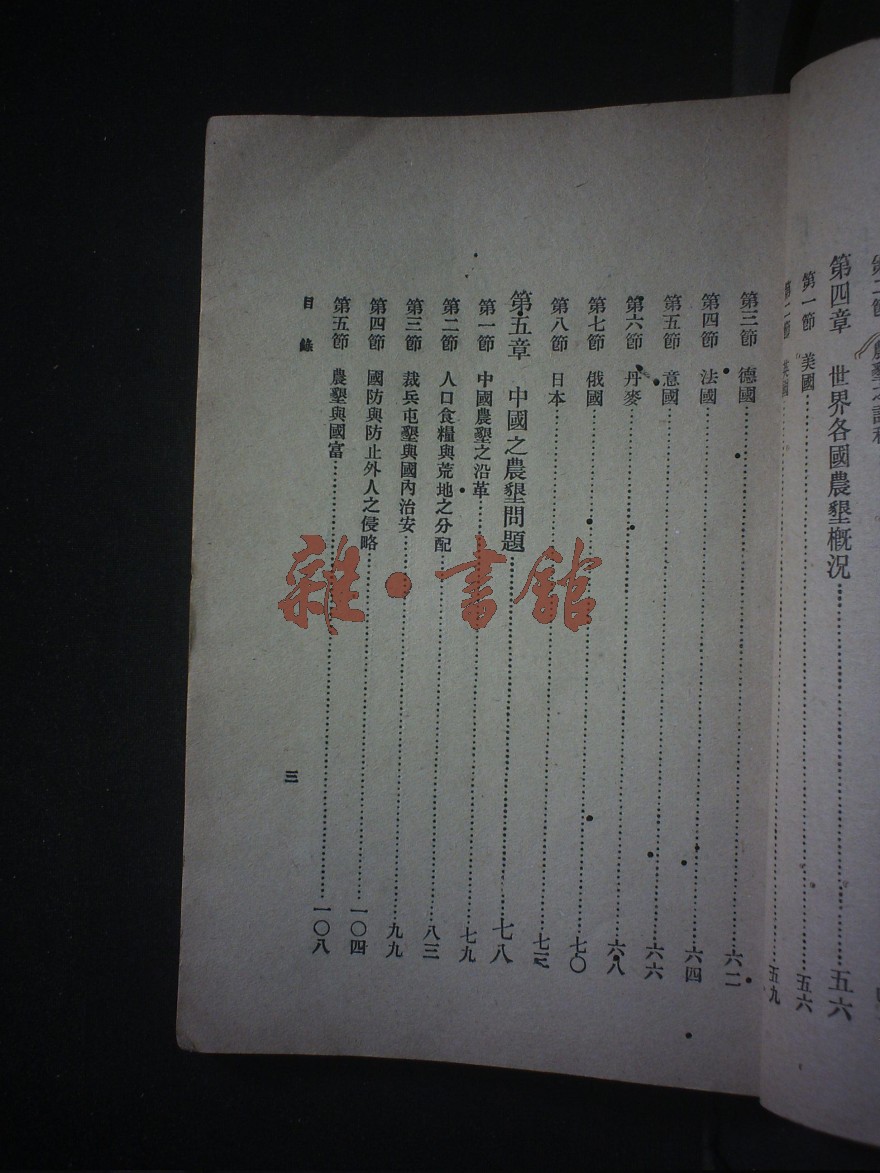 農墾之
第四章 世界各國農墾槪況……五六
第一節 美國……五六
第二節 英國……五九
第三節 德國……六二
第四節 法國……六四
第五節 意國……六六
第六節 丹麥……六八
第七節 俄國……七〇
第八節 日本……
第五章 中國之農墾問題……七八
第一節 中國農墾之沿革……七九
第二節 人口食糧與荒地之分配……八三
第三節 裁兵屯墾與國內治安……九九
第四節 國防與防止外人之侵略……一〇四
第五節 農墾與國富……一〇八
目錄
三
雜·書館